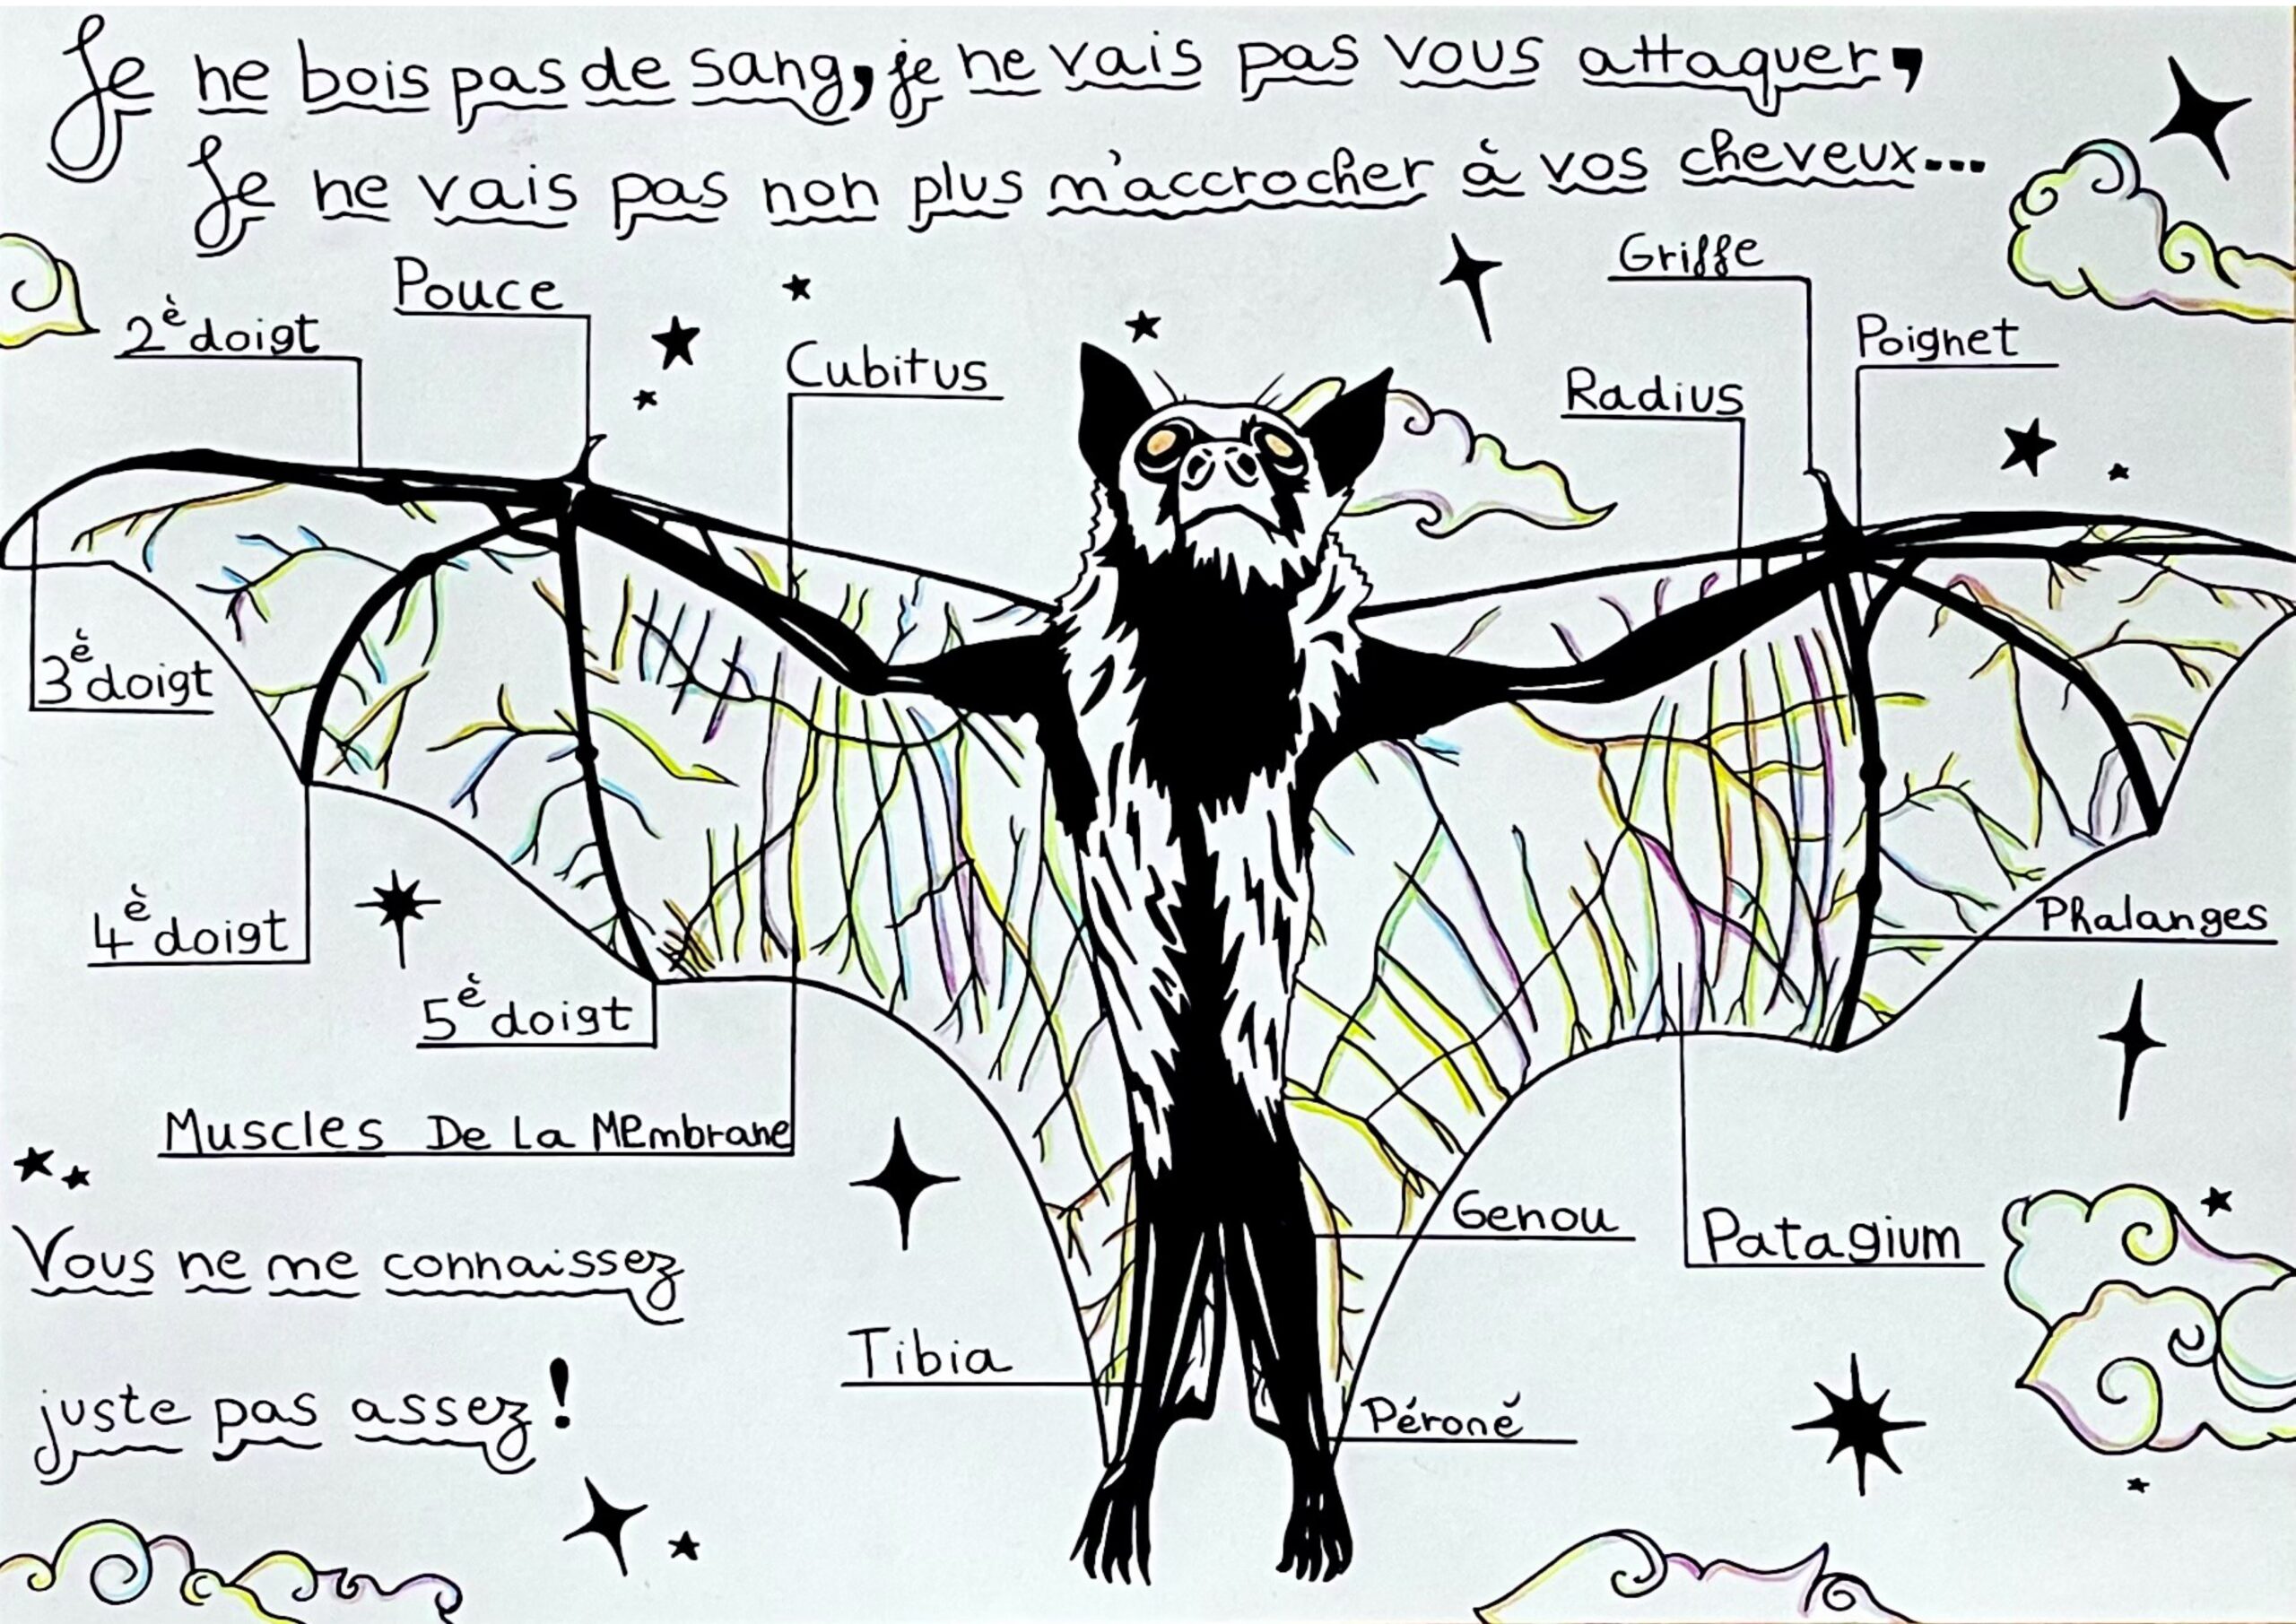 Je ne bois pas de sang, je ne vais pas vous attaquer,
Je ne vais pas non plus m'accrocher à vos cheveux...
Griffe
Pouce
2è doigt
Poignet
Cubitus
Radius
3è doigt
Phalanges
4è doigt
5è doigt
Muscles De La Membrane
Genou
Patagium
Vous ne me connaissez
Tibia
juste pas assez !
Péroné